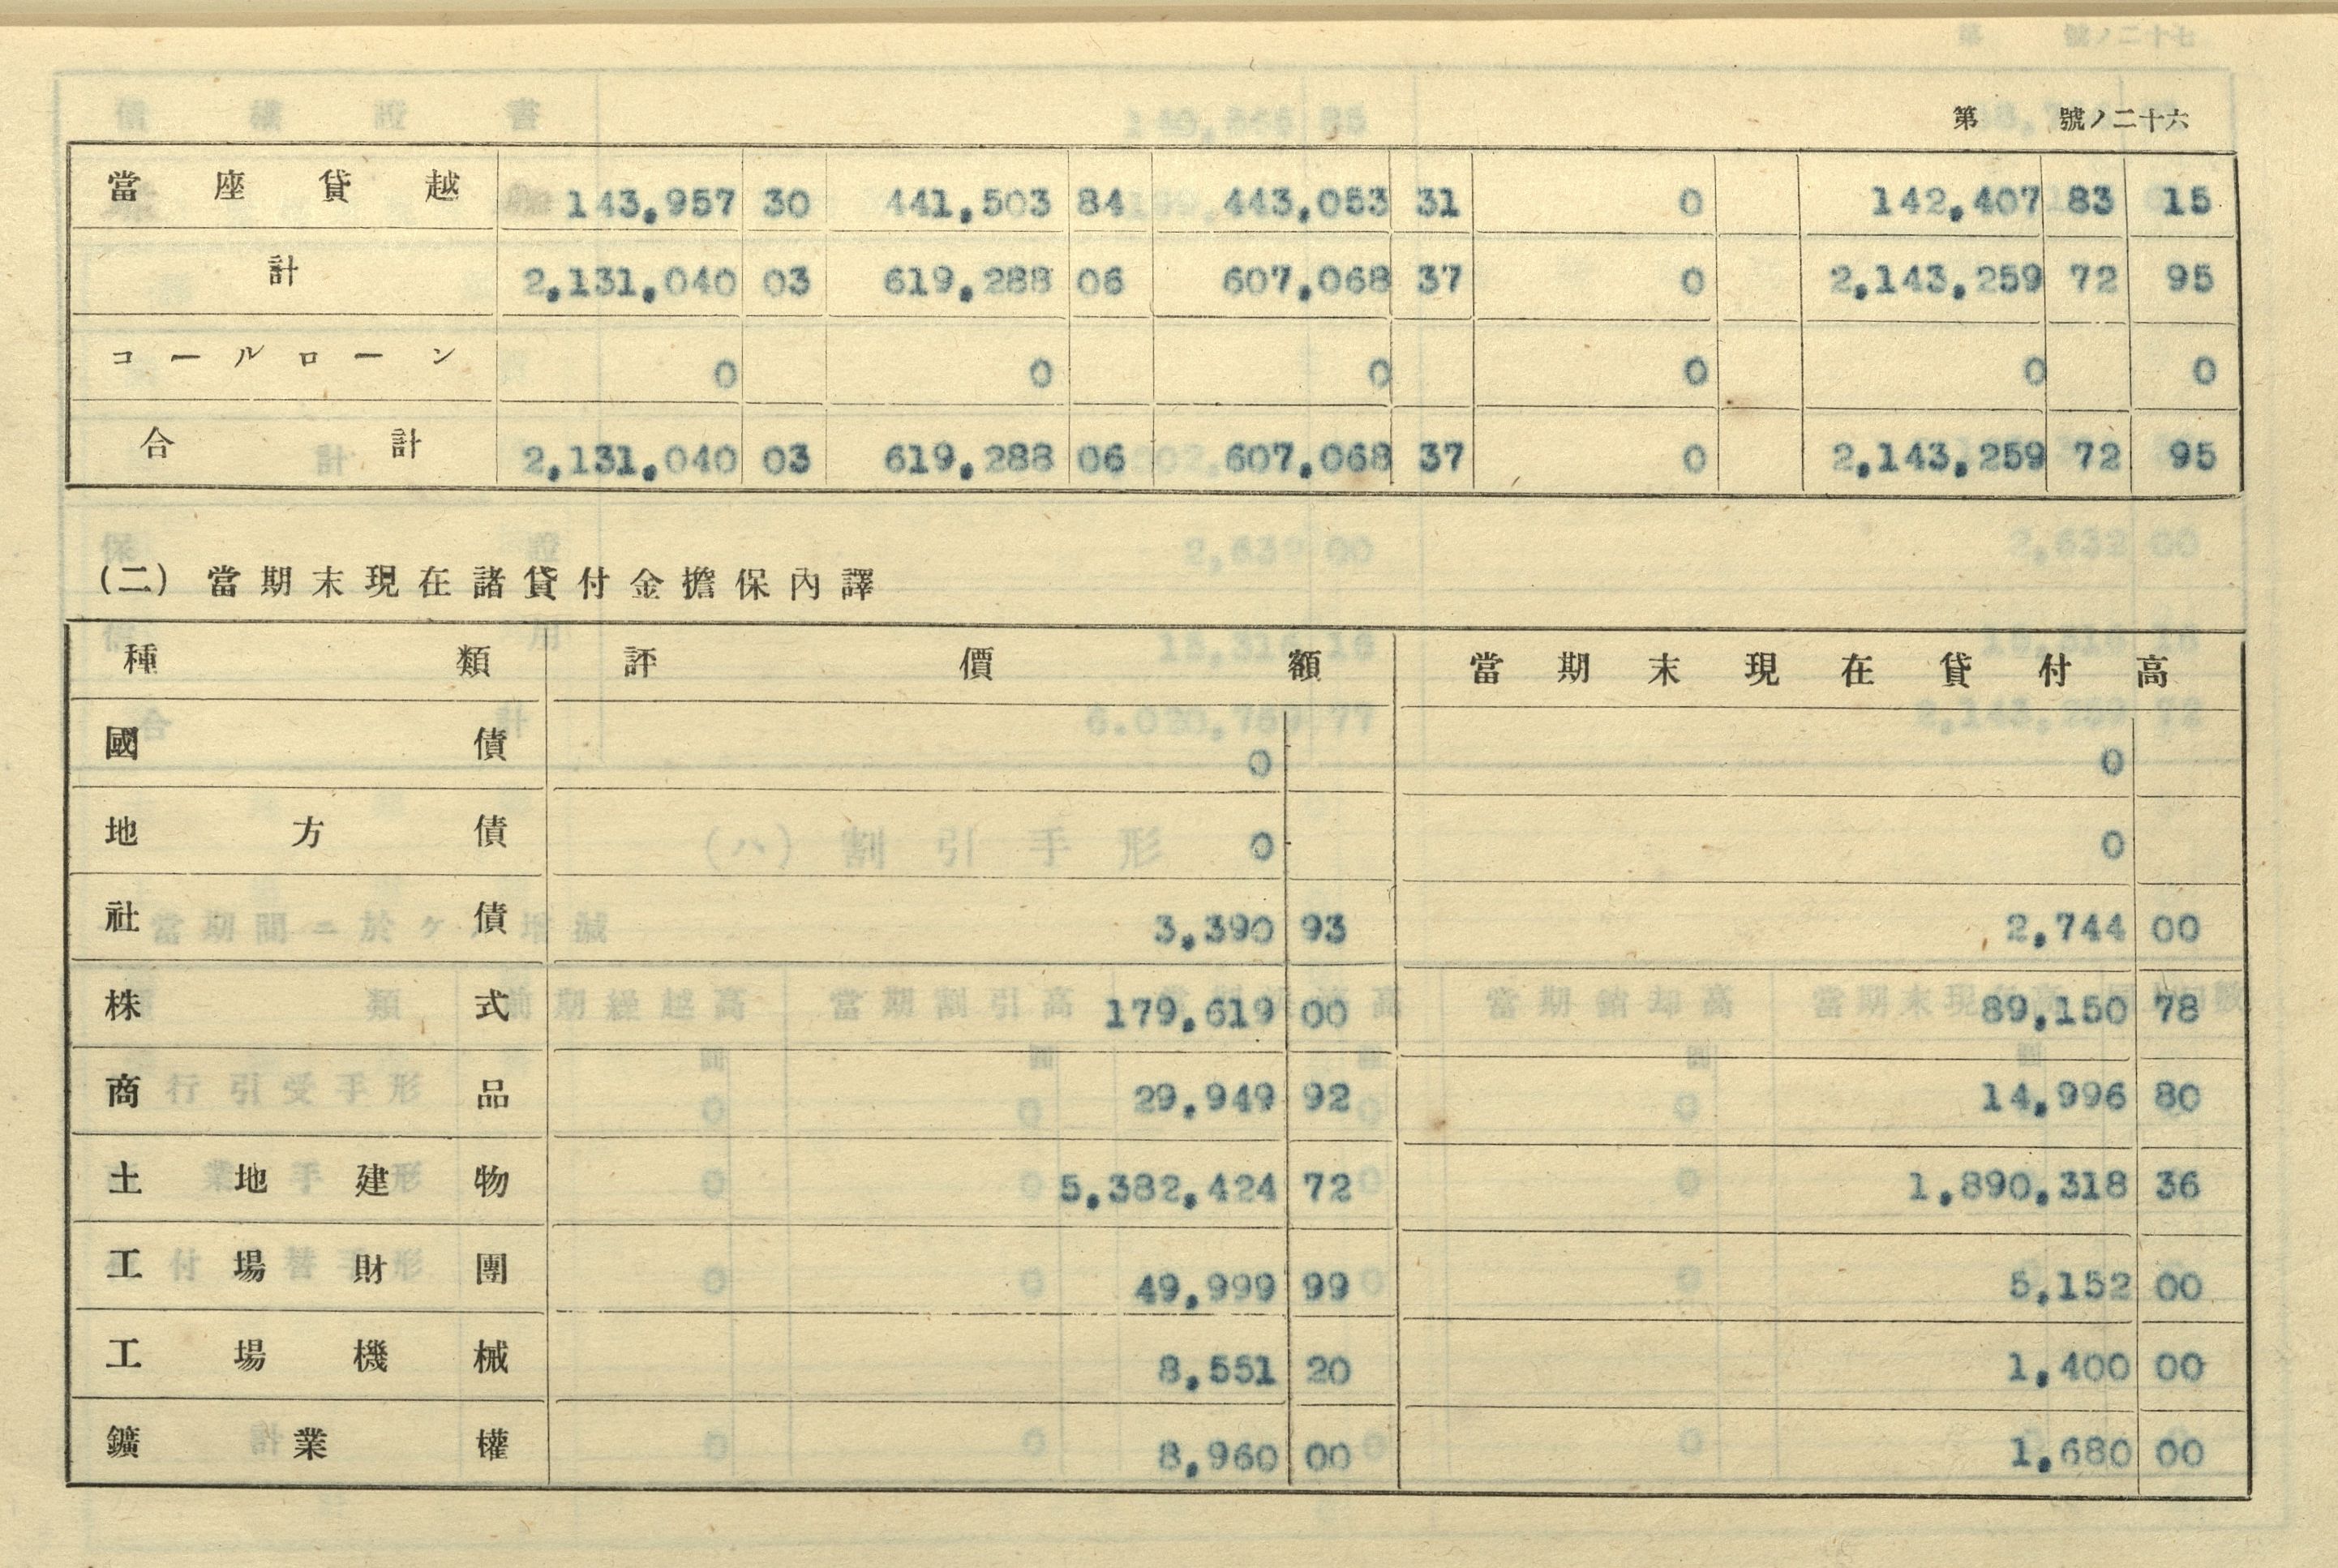 第 號ノ二十六
當座貸越 143,957 30 441,503 84 443,053 31 0 142,407 83 15
計 2,131,040 03 619,288 06 607,068 37 0 2,143,259 72 95
コールローン 0 0 0 0 0 0
合計 2,131,040 03 619,288 06 607,068 37 0 2,143,259 72 95
(二) 當期末現在諸貸付金擔保內譯
種類 評價額 當期末現在貸付高
國債 0 0
地方債 0 0
社債 3,390 93 2,744 00
株式 179,619 00 89,150 78
商品 29,949 92 14,996 80
土地建物 5,382,424 72 1,890,318 36
工場財團 49,999 99 5,152 00
工場機械 8,551 20 1,400 00
鑛業權 8,960 00 1,680 00